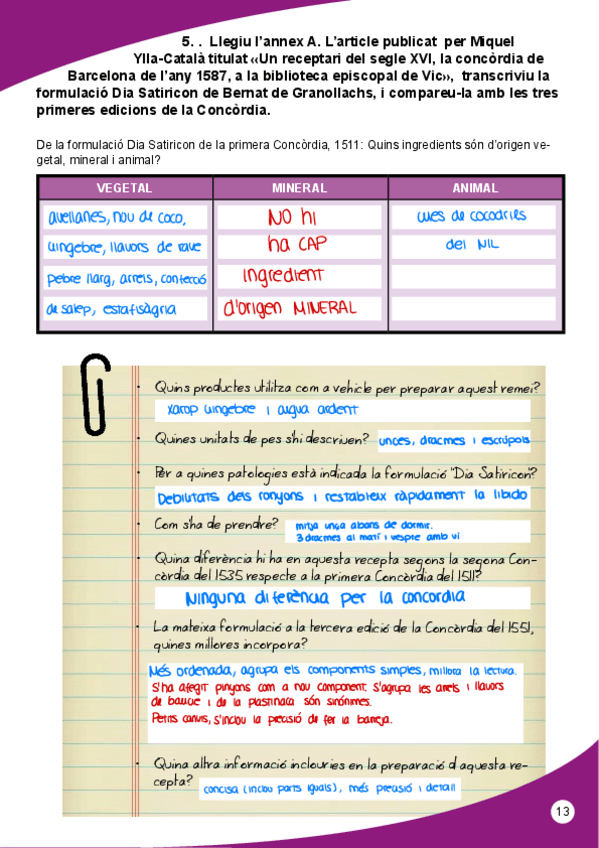 5. . Llegiu l'annex A. L'article publicat per Miquel
Ylla-Català titulat «Un receptari del segle XVI, la concòrdia de
Barcelona de l'any 1587, a la biblioteca episcopal de Vic», transcriviu la
formulació Dia Satiricon de Bernat de Granollachs, i compareu-la amb les tres
primeres edicions de la Concòrdia.
De la formulació Dia Satiricon de la primera Concòrdia, 1511: Quins ingredients són d'origen ve-
getal, mineral i animal?
VEGETAL MINERAL ANIMAL
avellanes, nou de coco, NO hi cues de cocodriles
gingebre, llavors de rave ha CAP del NIL
pebre llarg, arrels, confecció ingredient
de salep, estafisàgria d'origen MINERAL
· Quins productes utilitza com a vehicle per preparar aquest remei?
xarop gingebre i aigua ardent
· Quines unitats de pes s'hi descriuen? unces, dracmes i escrúpols
· Per a quines patologies està indicada la formulació "Dia Satiricon"?
Debilitats dels ronyons i restableix ràpidament la libido
· Com s'ha de prendre? mitja unça abans de dormir.
3 dracmes al matí i vespre amb vi
· Quina diferència hi ha en aquesta recepta segons la segona Con-
còrdia del 1535 respecte a la primera Concòrdia del 1511?
Ninguna diferència per la concordia
· La mateixa formulació a la tercera edició de la Concòrdia del 1551,
quines millores incorpora?
Més ordenada, agrupa els components simples, millora la lectura.
S'ha afegit pinyons com a nou component. S'agrupa les arrels i llavors
de i de la plastinaca són sinónimes.
Petits canvis, s'inclou la precisió de fer la barreja.
· Quina altra informació inclouries en la preparació d'aquesta re-
cepta? concisa (inclou parts iguals), més precisió i detall
13